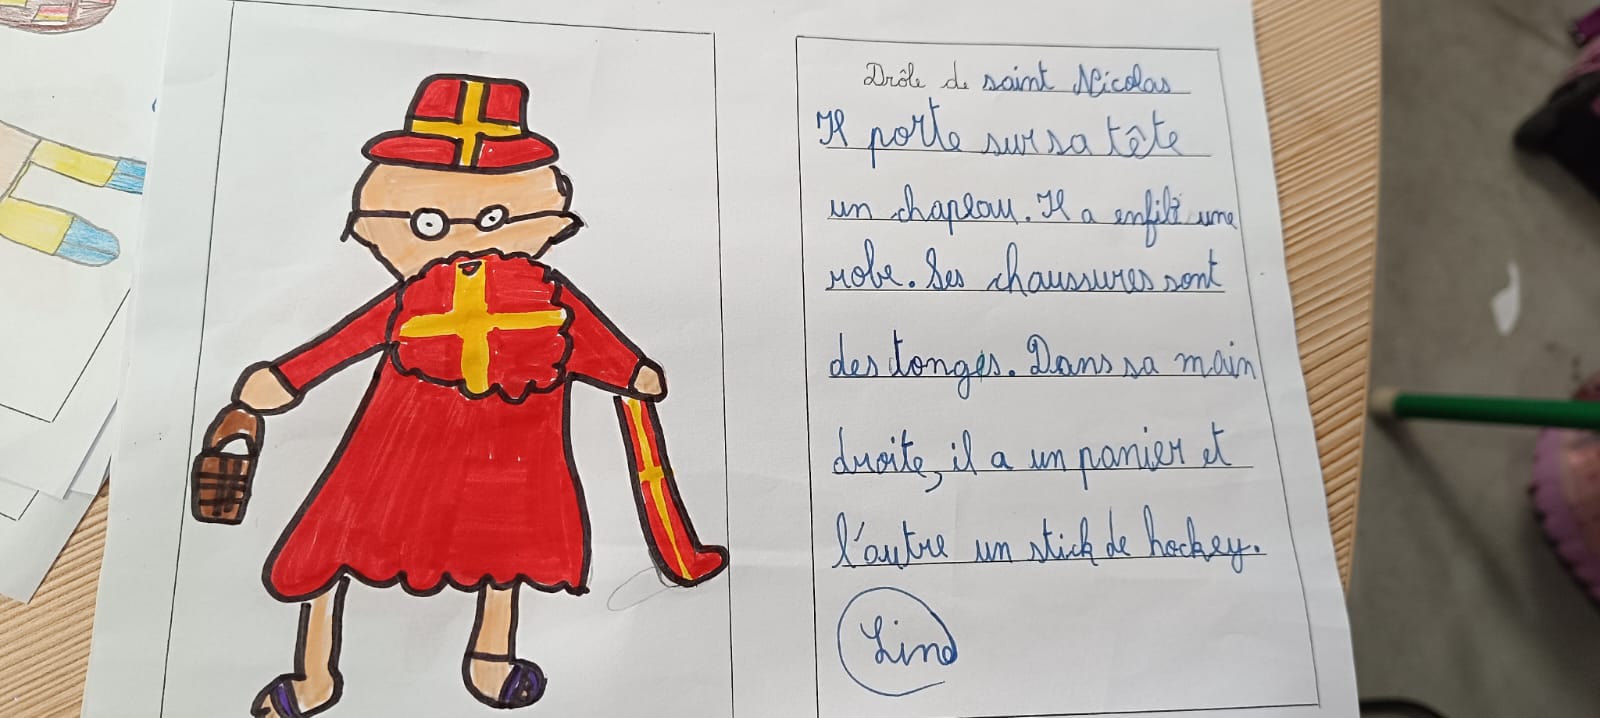 Drôle de saint Nicolas
Il porte sur sa tête
un chapeau. Il a enfilé une
robe. Ses chaussures sont
des tonges. Dans sa main
droite, il a un panier et
l'autre un stick de hockey.
Lino